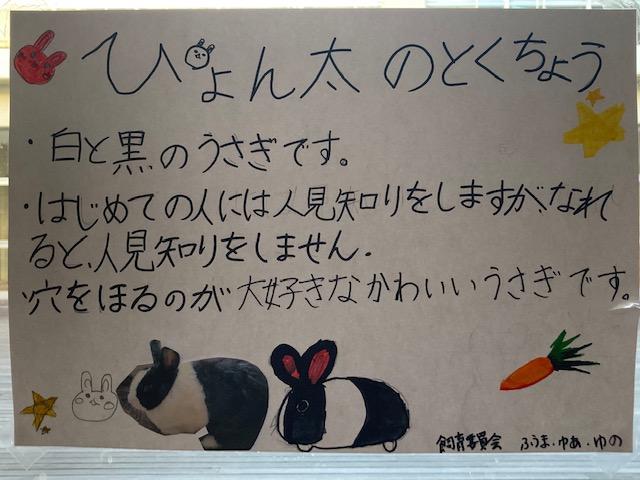 ぴょん太のとくちょう
・白と黒のうさぎです。
・はじめての人には人見知りをしますが、なれ
ると、人見知りをしません。
・穴をほるのが大好きなかわいいうさぎです。
飼育委員会 ふうま・ゆあ・ゆの